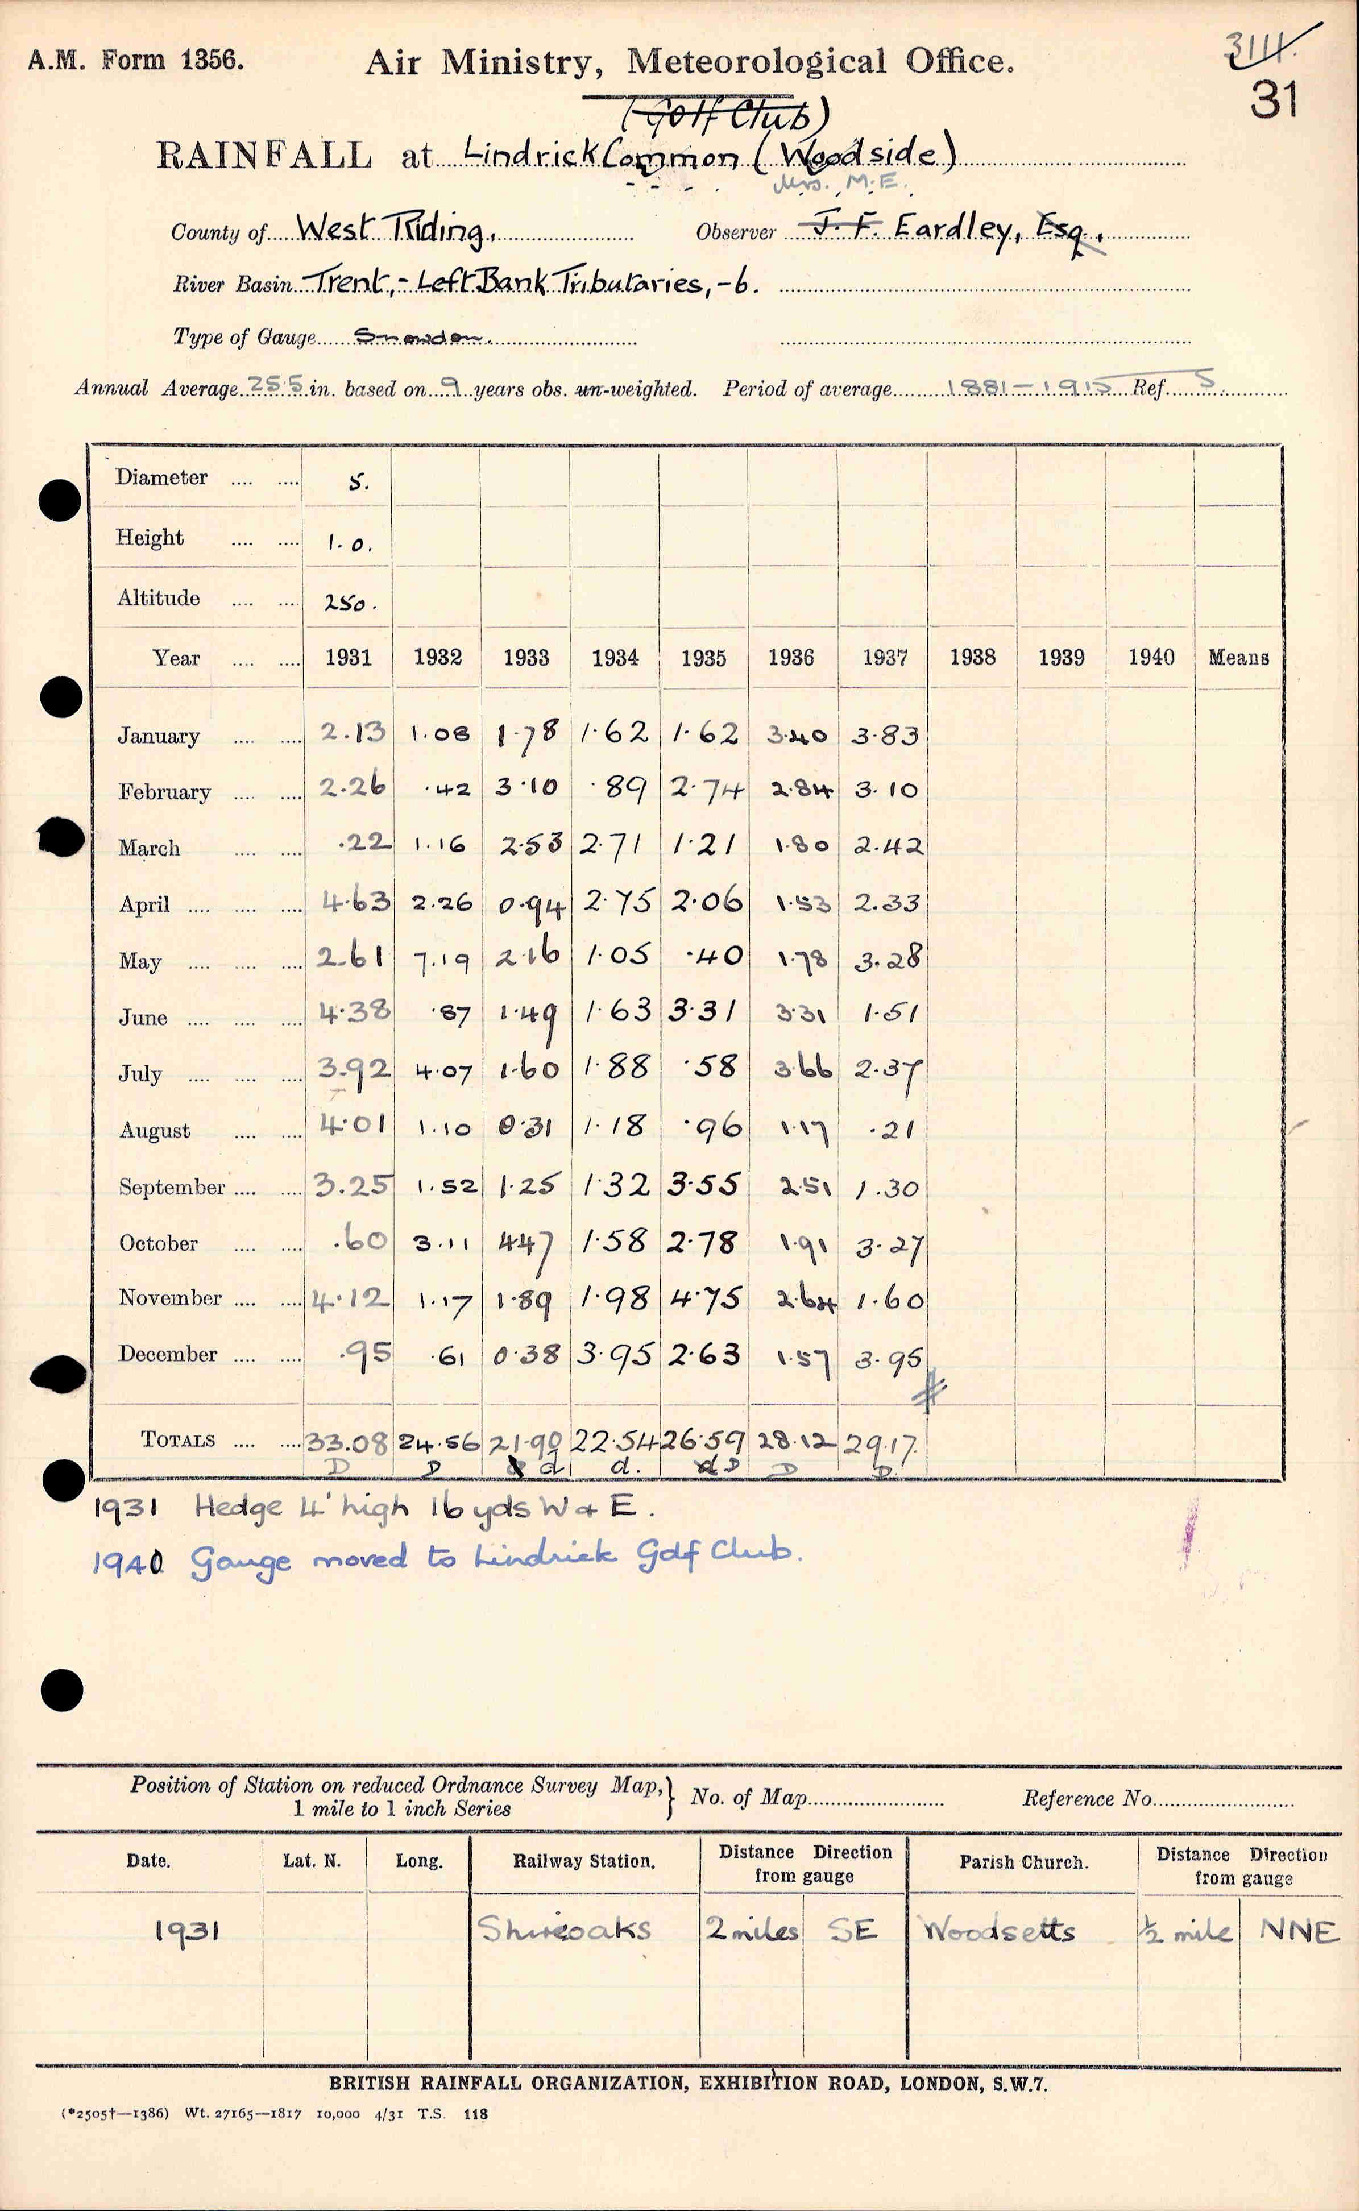 A.M. Form 1356. Air Ministry, Meteorological Office. 3111.
31
(Golf Club)
RAINFALL at Lindrick Common (Woodside)
Mrs. M.E.
County of West Riding. Observer J. F. Eardley, Esq.
River Basin Trent,- Left Bank Tributaries,-6.
Type of Gauge Snowdon.
Annual Average 25.5 in. based on 9 years obs. un-weighted. Period of average 1881-1915 Ref. 5.
Diameter .... .... 5.
Height .... .... 1.0.
Altitude .... .... 250.
Year .... .... 1931 1932 1933 1934 1935 1936 1937 1938 1939 1940 Means
January .... .... 2.13 1.08 1.78 1.62 1.62 3.40 3.83
February .... .... 2.26 .42 3.10 .89 2.74 2.84 3.10
March .... .... .22 1.16 2.53 2.71 1.21 1.80 2.42
April .... .... .... 4.63 2.26 0.94 2.75 2.06 1.53 2.33
May .... .... .... 2.61 7.19 2.16 1.05 .40 1.78 3.28
June .... .... .... 4.38 .87 1.49 1.63 3.31 3.31 1.51
July .... .... .... 3.92 4.07 1.60 1.88 .58 3.66 2.37
August .... .... 4.01 1.10 0.31 1.18 .96 1.17 .21
September .... .... 3.25 1.52 1.25 1.32 3.55 2.51 1.30
October .... .... .60 3.11 4.47 1.58 2.78 1.91 3.27
November .... .... 4.12 1.17 1.89 1.98 4.75 2.64 1.60
December .... .... .95 .61 0.38 3.95 2.63 1.57 3.95
TOTALS .... .... 33.08 24.56 21.90 22.54 26.59 28.12 29.17.
D D d d. d D D D.
1931 Hedge 4' high 16 yds W & E.
1940 Gauge moved to Lindrick Golf Club.
Position of Station on reduced Ordnance Survey Map,} No. of Map Reference No.
1 mile to 1 inch Series
Date. Lat. N. Long. Railway Station. Distance Direction from gauge Parish Church. Distance Direction from gauge
1931 Shireoaks 2 miles SE Woodsetts ½ mile NNE
BRITISH RAINFALL ORGANIZATION, EXHIBITION ROAD, LONDON, S.W.7.
(*2505†—1386) Wt. 27165—1817 10,000 4/31 T.S. 118